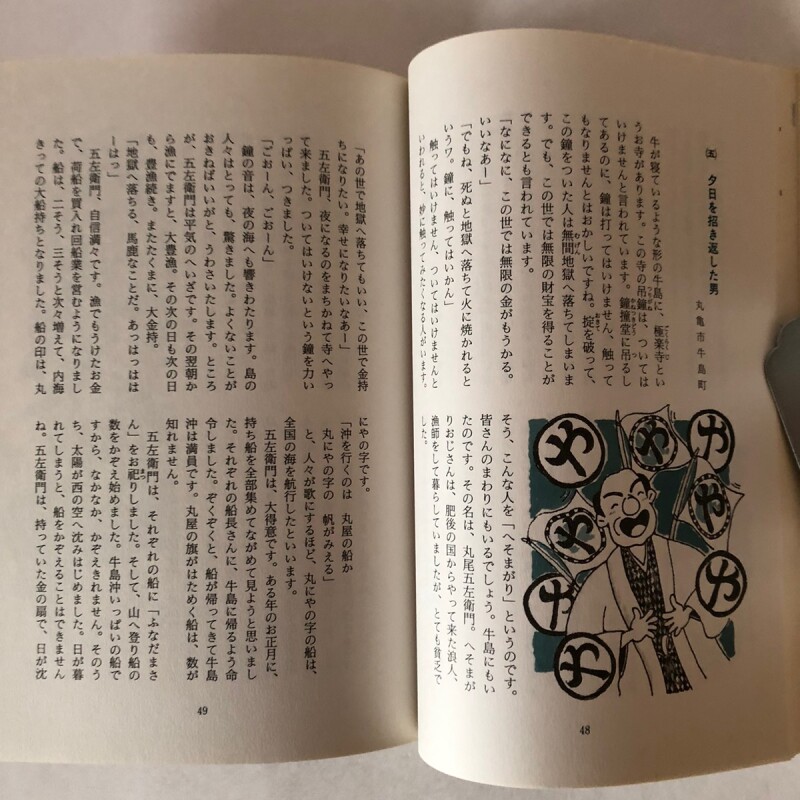 (五) 夕日を招き返した男
丸亀市牛島町
牛が寝ているような形の牛島に、極楽寺とい
うお寺があります。この寺の吊鐘は、ついては
いけませんと言われています。鐘撞堂に吊るし
てあるのに、鐘は打ってはいけません、触って
もなりませんとはおかしいですね。掟を破って、
この鐘をついた人は無間地獄へ落ちてしまいま
す。でも、この世では無限の財宝を得ることが
できるとも言われています。
「なになに、この世では無限の金がもうかる。
いいなあー」
「でもね、死ぬと地獄へ落ちて火に焼かれると
いうワ。鐘に、触ってはいかん」
触ってはいけません、ついてはいけませんと
いわれると、妙に触ってみたくなる人がいます。
そう、こんな人を「へそまがり」というのです。
皆さんのまわりにもいるでしょう。牛島にもい
たのです。その名は、丸尾五左衛門。へそまが
りおじさんは、肥後の国からやって来た浪人、
漁師をして暮らしていましたが、とても貧乏で
した。
や
や
や
や
や
や
や
や
48
「あの世で地獄へ落ちてもいい、この世で金持
ちになりたい。幸せになりたいなあー」
五左衛門、夜になるのをまちかねて寺へやっ
て来ました。ついてはいけないという鐘を力い
っぱい、つきました。
「ごおーん、ごおーん」
鐘の音は、夜の海へも響きわたります。島の
人々はとっても、驚きました。よくないことが
おきねばいいがと、うわさいたします。ところ
が、五左衛門は平気のへいざです。その翌朝か
ら漁にでますと、大豊漁。その次の日も次の日
も、豊漁続き。またたくまに、大金持。
「地獄へ落ちる、馬鹿なことだ。あっはっはは
ーはっ」
五左衛門、自信満々です。漁でもうけたお金
で、荷船を買入れ回船業を営むようになりまし
た。船は、二そう、三そうと次々増えて、内海
きっての大船持ちとなりました。船の印は、丸
にやの字です。
「沖を行くのは 丸屋の船か
丸にやの字の 帆がみえる」
と、人々が歌にするほど、丸にやの字の船は、
全国の海を航行したといいます。
五左衛門は、大得意です。ある年のお正月に、
持ち船を全部集めてながめて見ようと思いまし
た。それぞれの船長さんに、牛島に帰るよう命
令しました。ぞくぞくと、船が帰ってきて牛島
沖は満員です。丸屋の旗がはためく船は、数が
知れません。
五左衛門は、それぞれの船に「ふなだまさ
ん」をお祀りしました。そして、山へ登り船の
数をかぞえ始めました。牛島沖いっぱいの船で
すから、なかなか、かぞえきれません。そのう
ち、太陽が西の空へ沈みはじめました。日が暮
れてしまうと、船をかぞえることはできません
ね。五左衛門は、持っていた金の扇で、日が沈
49